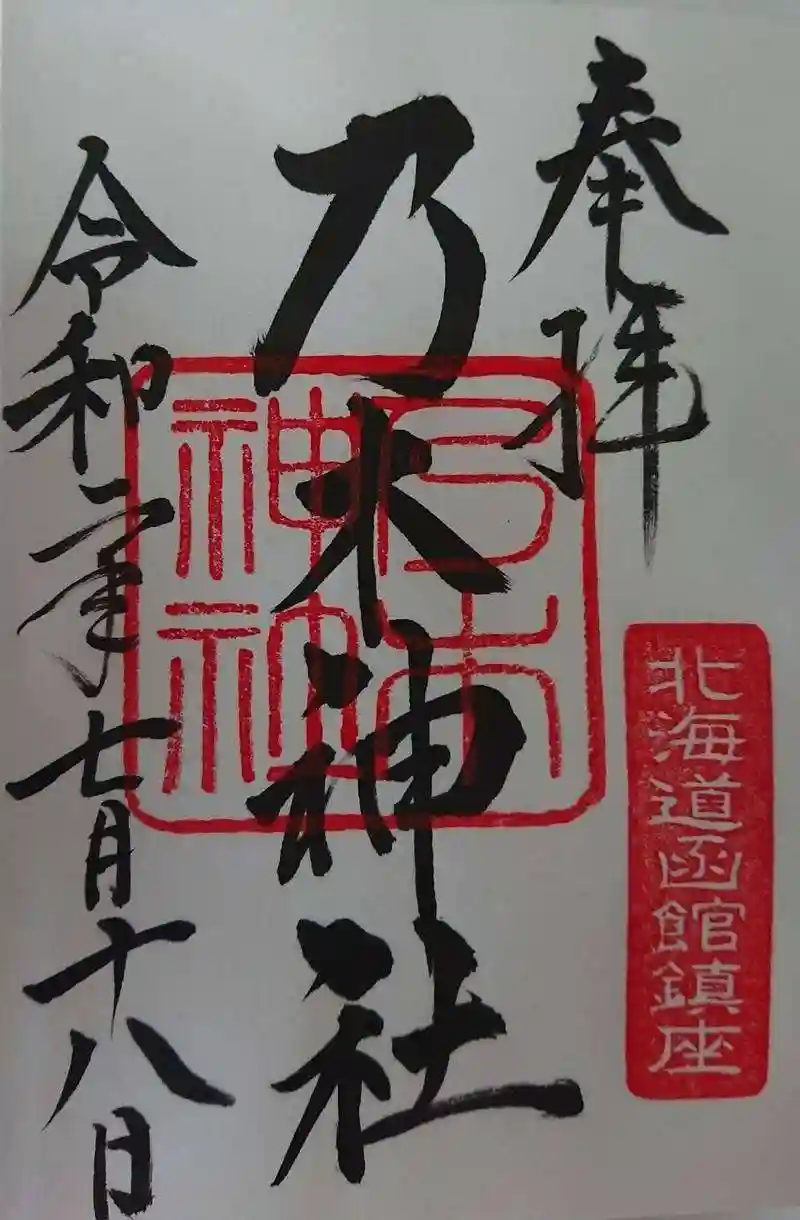 奉拝
北海道函館鎮座
乃木神社
乃木
神社
令和二年七月十八日